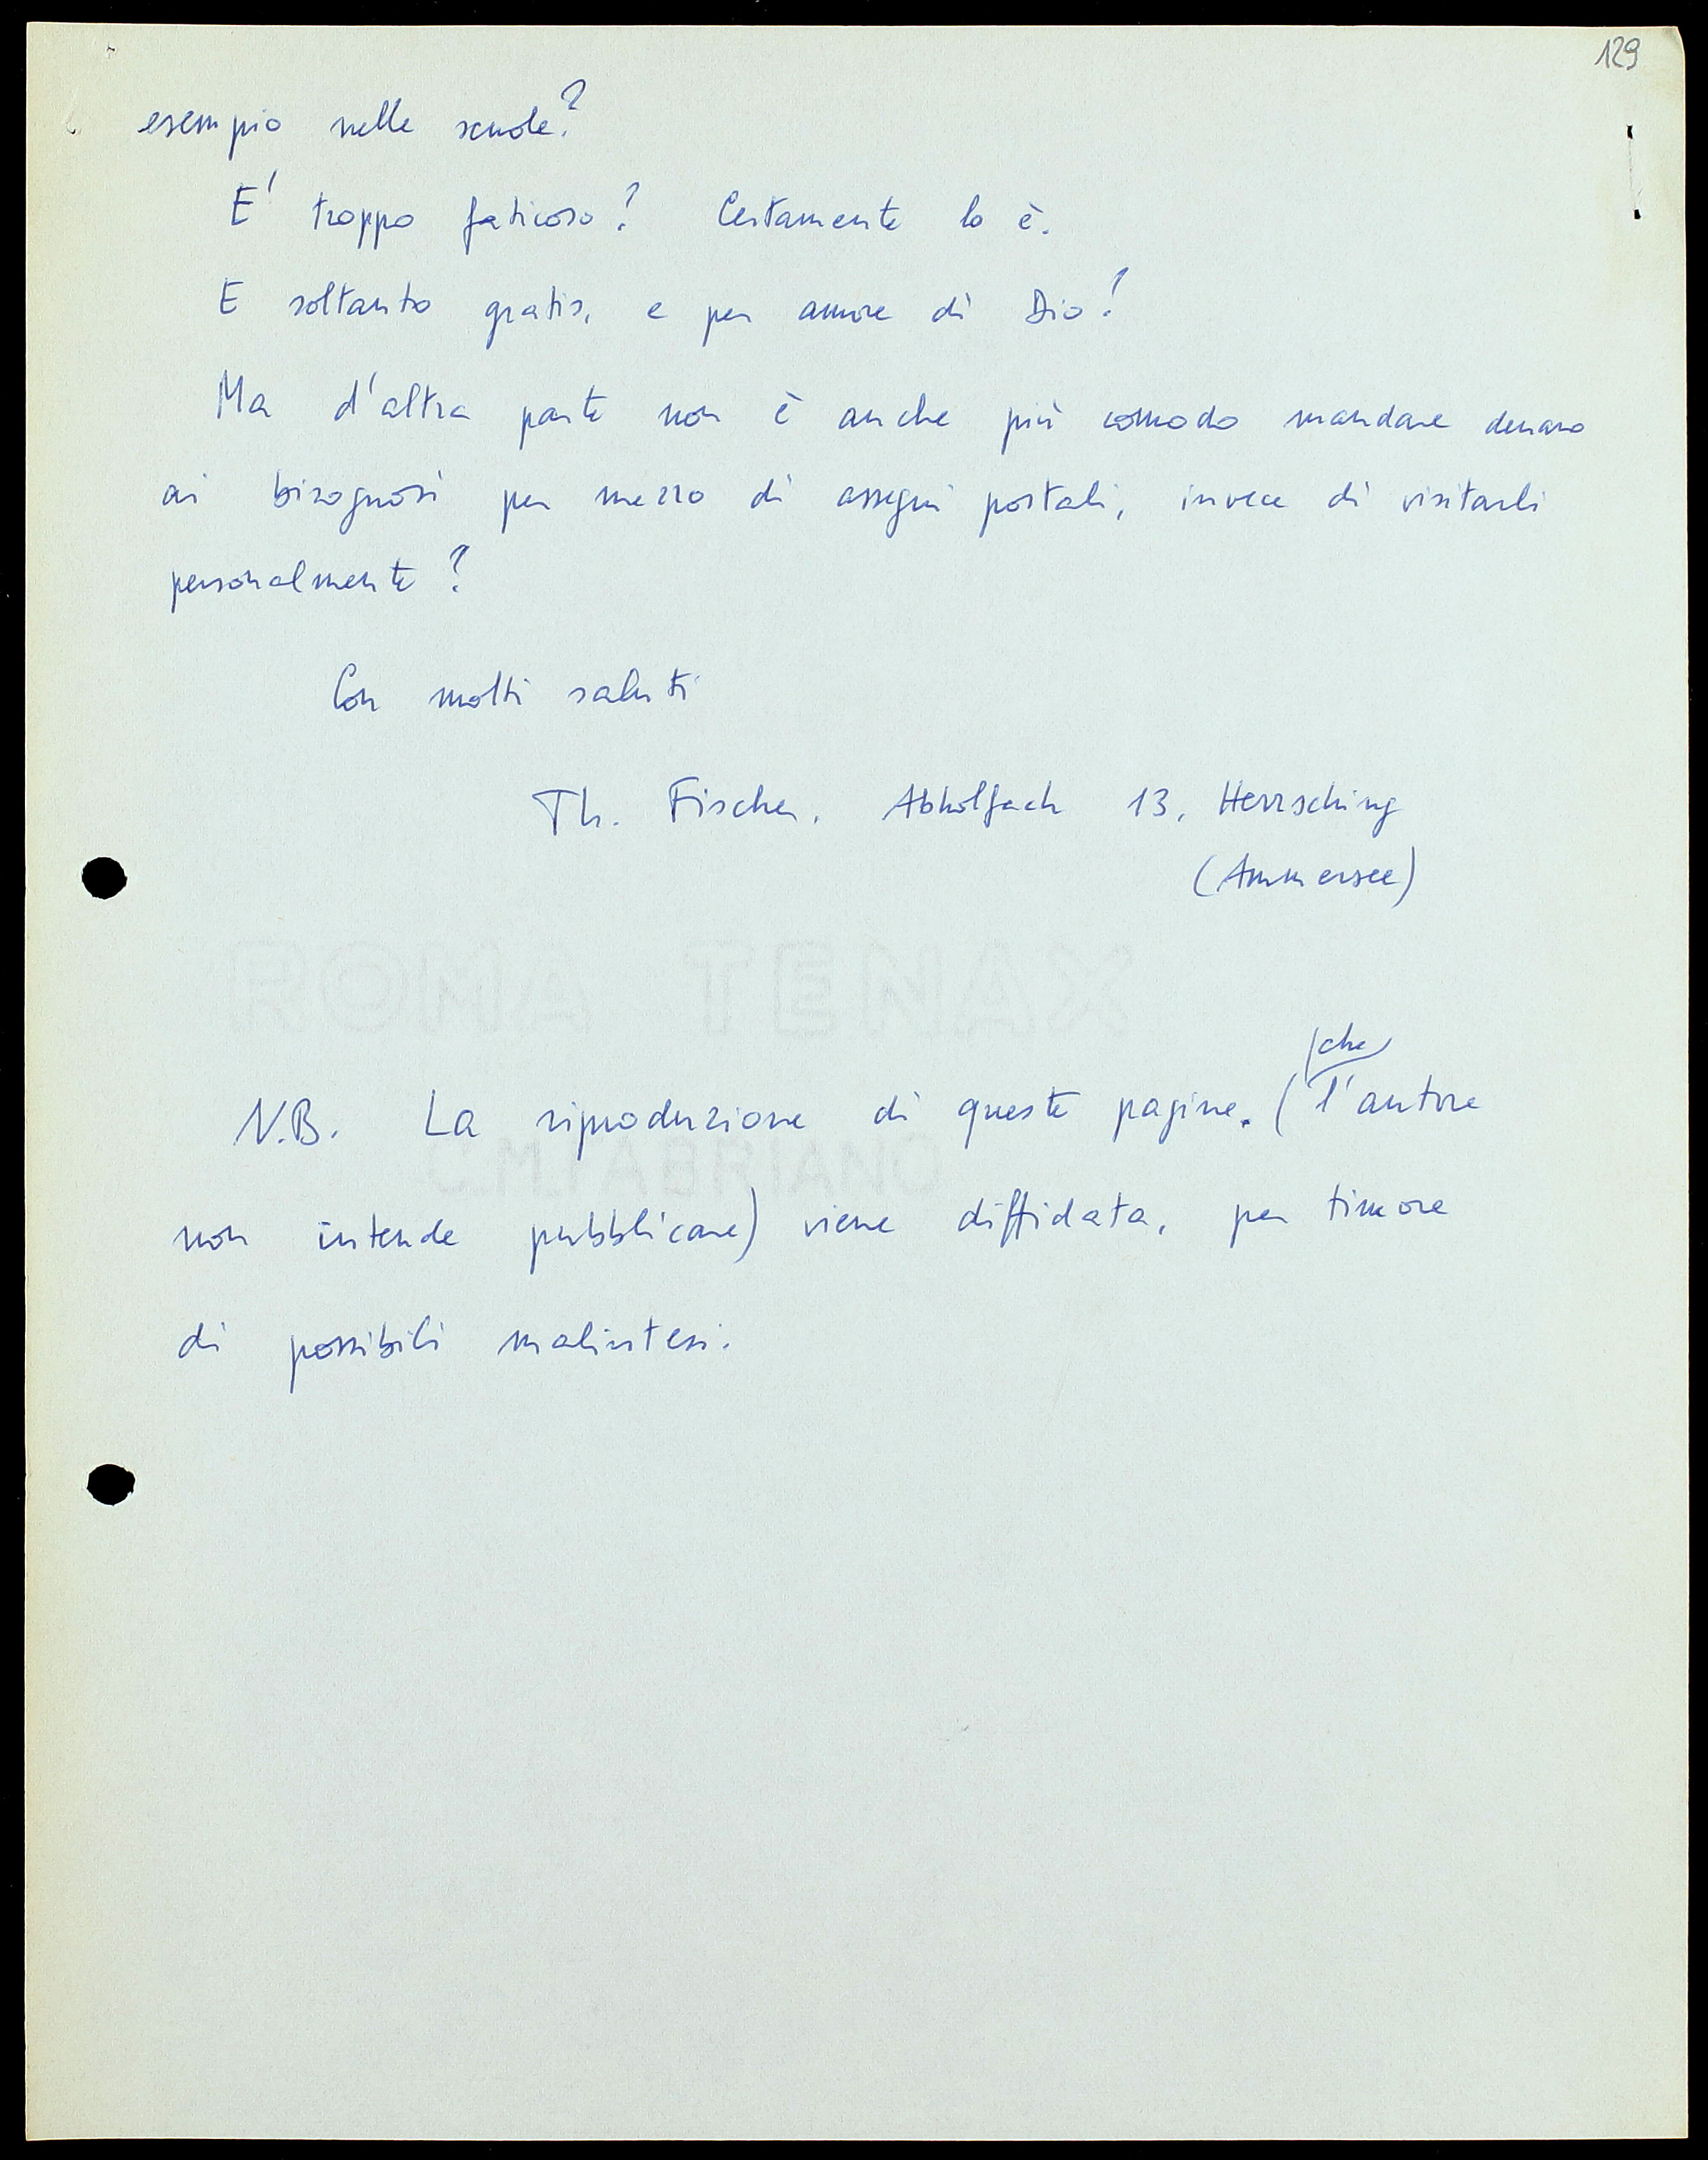 129
esempio nelle scuole?
E' troppo faticoso? Certamente lo è.
E soltanto gratis, e per amore di Dio!
Ma d'altra parte non è anche più comodo mandare denaro
ai bisognosi per mezzo di assegni postali, invece di visitarli
personalmente?
Con molti saluti
Th. Fischer, Abholfach 13, Herrsching
(Ammersee)
ROMA TENAX
che
N.B. La riproduzione di queste pagine. (l'autore
C.M.FABRIANO
non intende pubblicare) viene diffidata, per timore
di possibili malintesi.